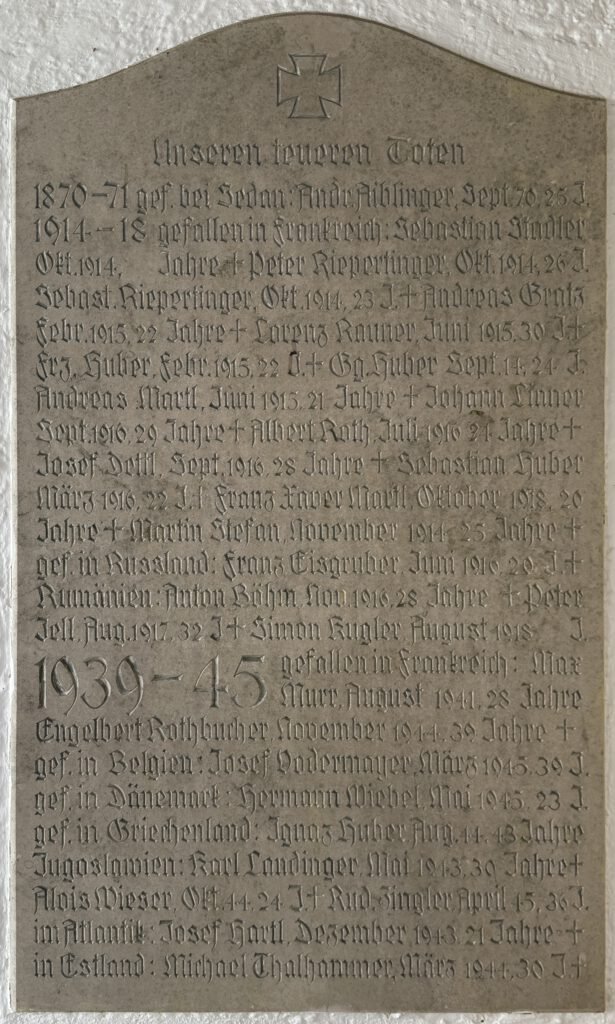 Unseren teueren Toten
1870-71 gef. bei Sedan: Andr. Aiblinger, Sept. 70, 25 J.
1914-18 gefallen in Frankreich: Sebastian Stadler
Okt. 1914, Jahre + Peter Riepertinger, Okt. 1914, 26 J.
Sebast. Riepertinger, Okt. 1914, 23 J. + Andreas Gratz
Febr. 1915, 22 Jahre + Lorenz Rauner, Juni 1915, 30 J. +
Frz. Huber, Febr. 1915, 22 J. + Gg. Huber Sept. 14, 24 J.
Andreas Martl, Juni 1915, 21 Jahre + Johann Linner
Sept. 1916, 29 Jahre + Albert Roth, Juli 1916 21 Jahre +
Josef Dettl, Sept. 1916, 28 Jahre + Sebastian Huber
März 1916, 22 J. + Franz Xaver Martl, Oktober 1918, 20
Jahre + Martin Stefan, November 1914, 25 Jahre +
gef. in Russland: Franz Eisgruber, Juni 1916, 20 J. +
Rumänien: Anton Böhm, Nov. 1916, 28 Jahre + Peter
Jell, Aug. 1917, 32 J + Simon Kugler, August 1918 J.
1939-45 gefallen in Frankreich: Max
Murr, August 1941, 28 Jahre
Engelbert Rothbucher, November 1944, 39 Jahre +
gef. in Belgien: Josef Vodermayer, März 1945, 39 J.
gef. in Dänemark: Hermann Wiebel, Mai 1945, 23 J.
gef. in Griechenland: Ignaz Huber, Aug. 44, 43 Jahre
Jugoslawien: Karl Landinger, Mai 1943, 30 Jahre +
Alois Wieser, Okt. 44, 24 J. + Rud. Zingler, April 45, 36 J.
im Atlantik: Josef Hartl, Dezember 1943, 21 Jahre +
in Estland: Michael Thalhammer, März 1944, 30 J. +